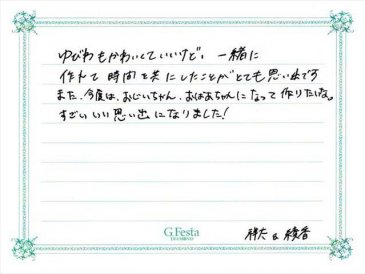 ゆびわもかわいくていいけど、一緒に
作れて時間を共にしたことがとても思い出です
また、今度は、おじいちゃん、おばあちゃんになって作りたいな。
すごいいい思い出になりました!
G.Festa
DIAMOND
祥大 & 綾香